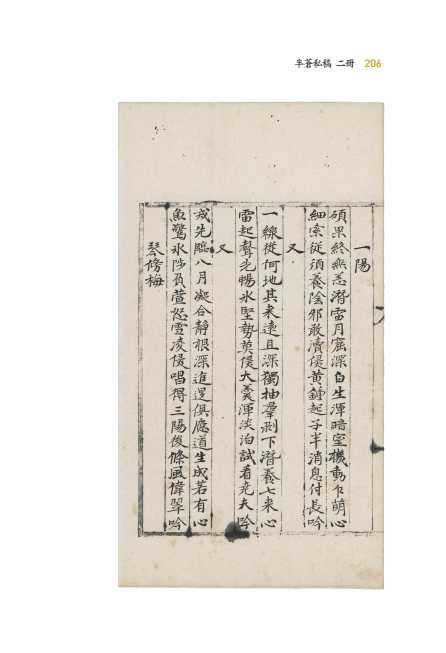 半蒼私稿 二冊 206
一陽
碩果終無恙潛雷月窟深白生渾暗室機動乍萌心
細察從須養陰邪敢瀆侵黃鐘起子半消息付長吟
又
一線從何地其來遠且深獨抽群剝下潛養七來心
雷起聲先暢氷堅勢莫侵大羹渾淡泊試看堯夫吟
又
戒先臨八月凝合靜根深進退俱應道生成若有心
魚驚氷陟負萱怒雪凌侵唱得三陽後條風偉翠吟
琴傍梅